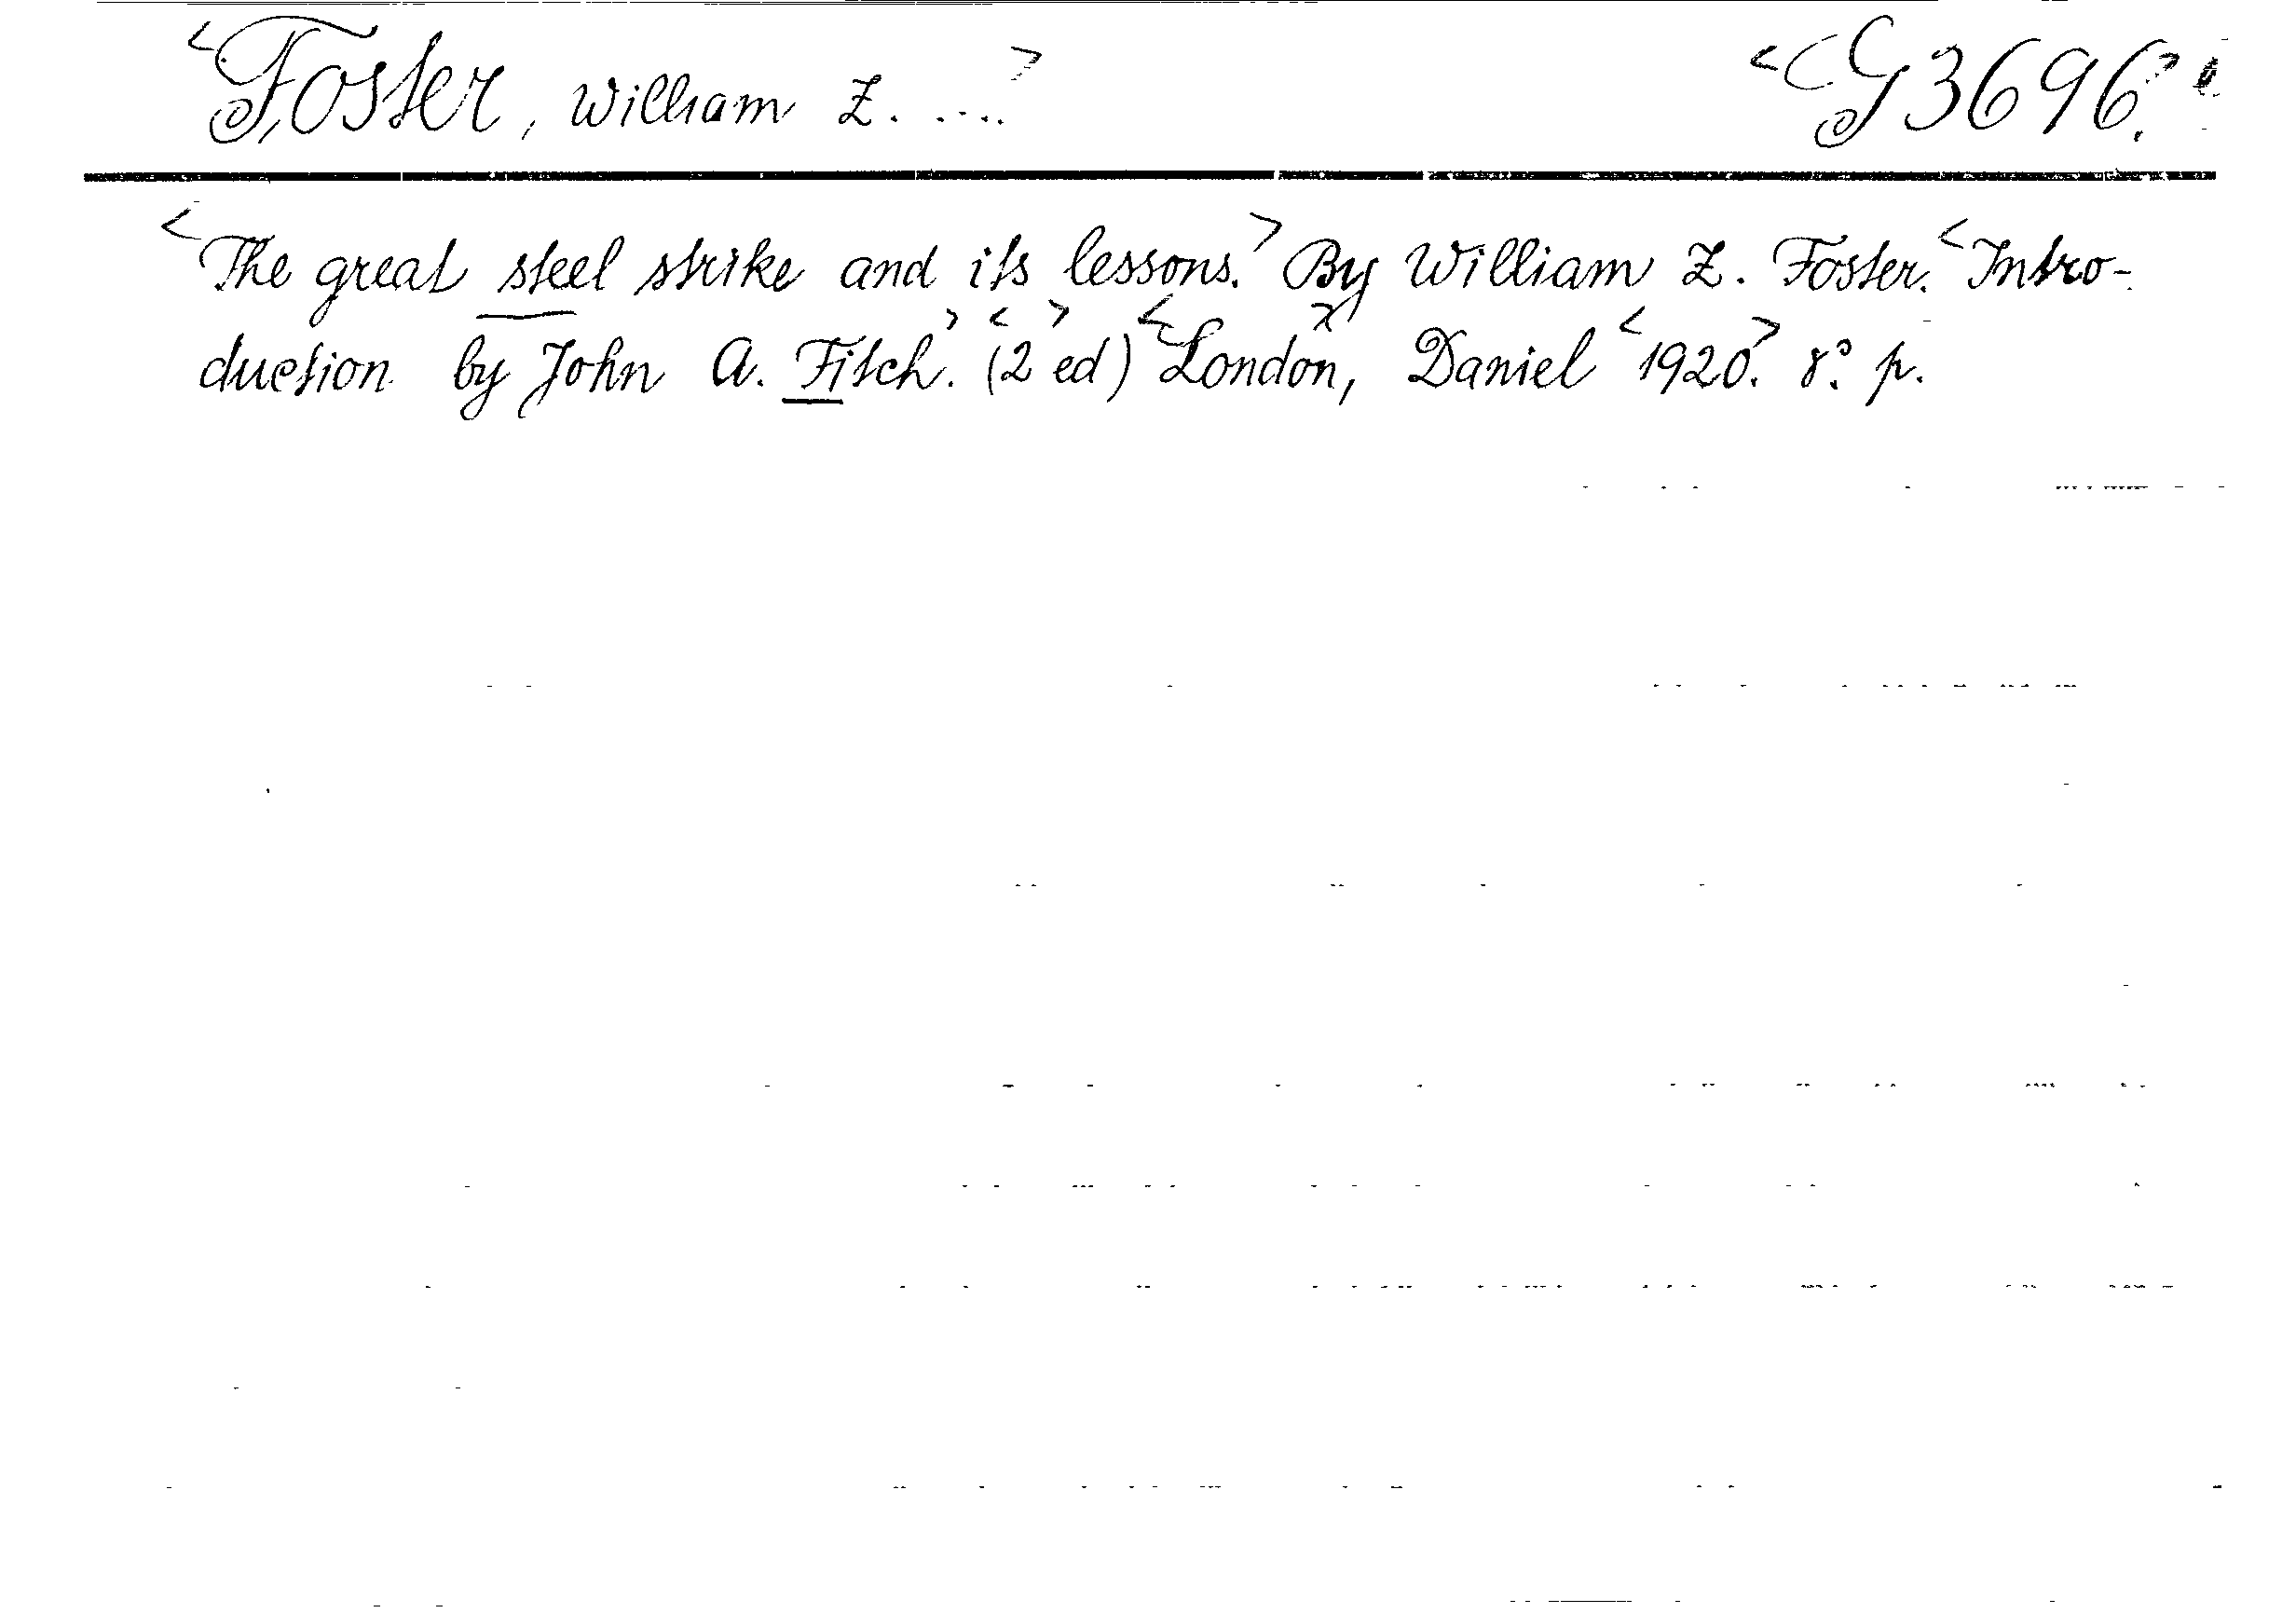 <Foster, William Z. ....> <G 3696.>
<The great steel strike and its lessons.> By William Z. Foster. <Intro-
duction by John A. Fitch.> (<2> ed) <London>, Daniel <1920>. 8° p.